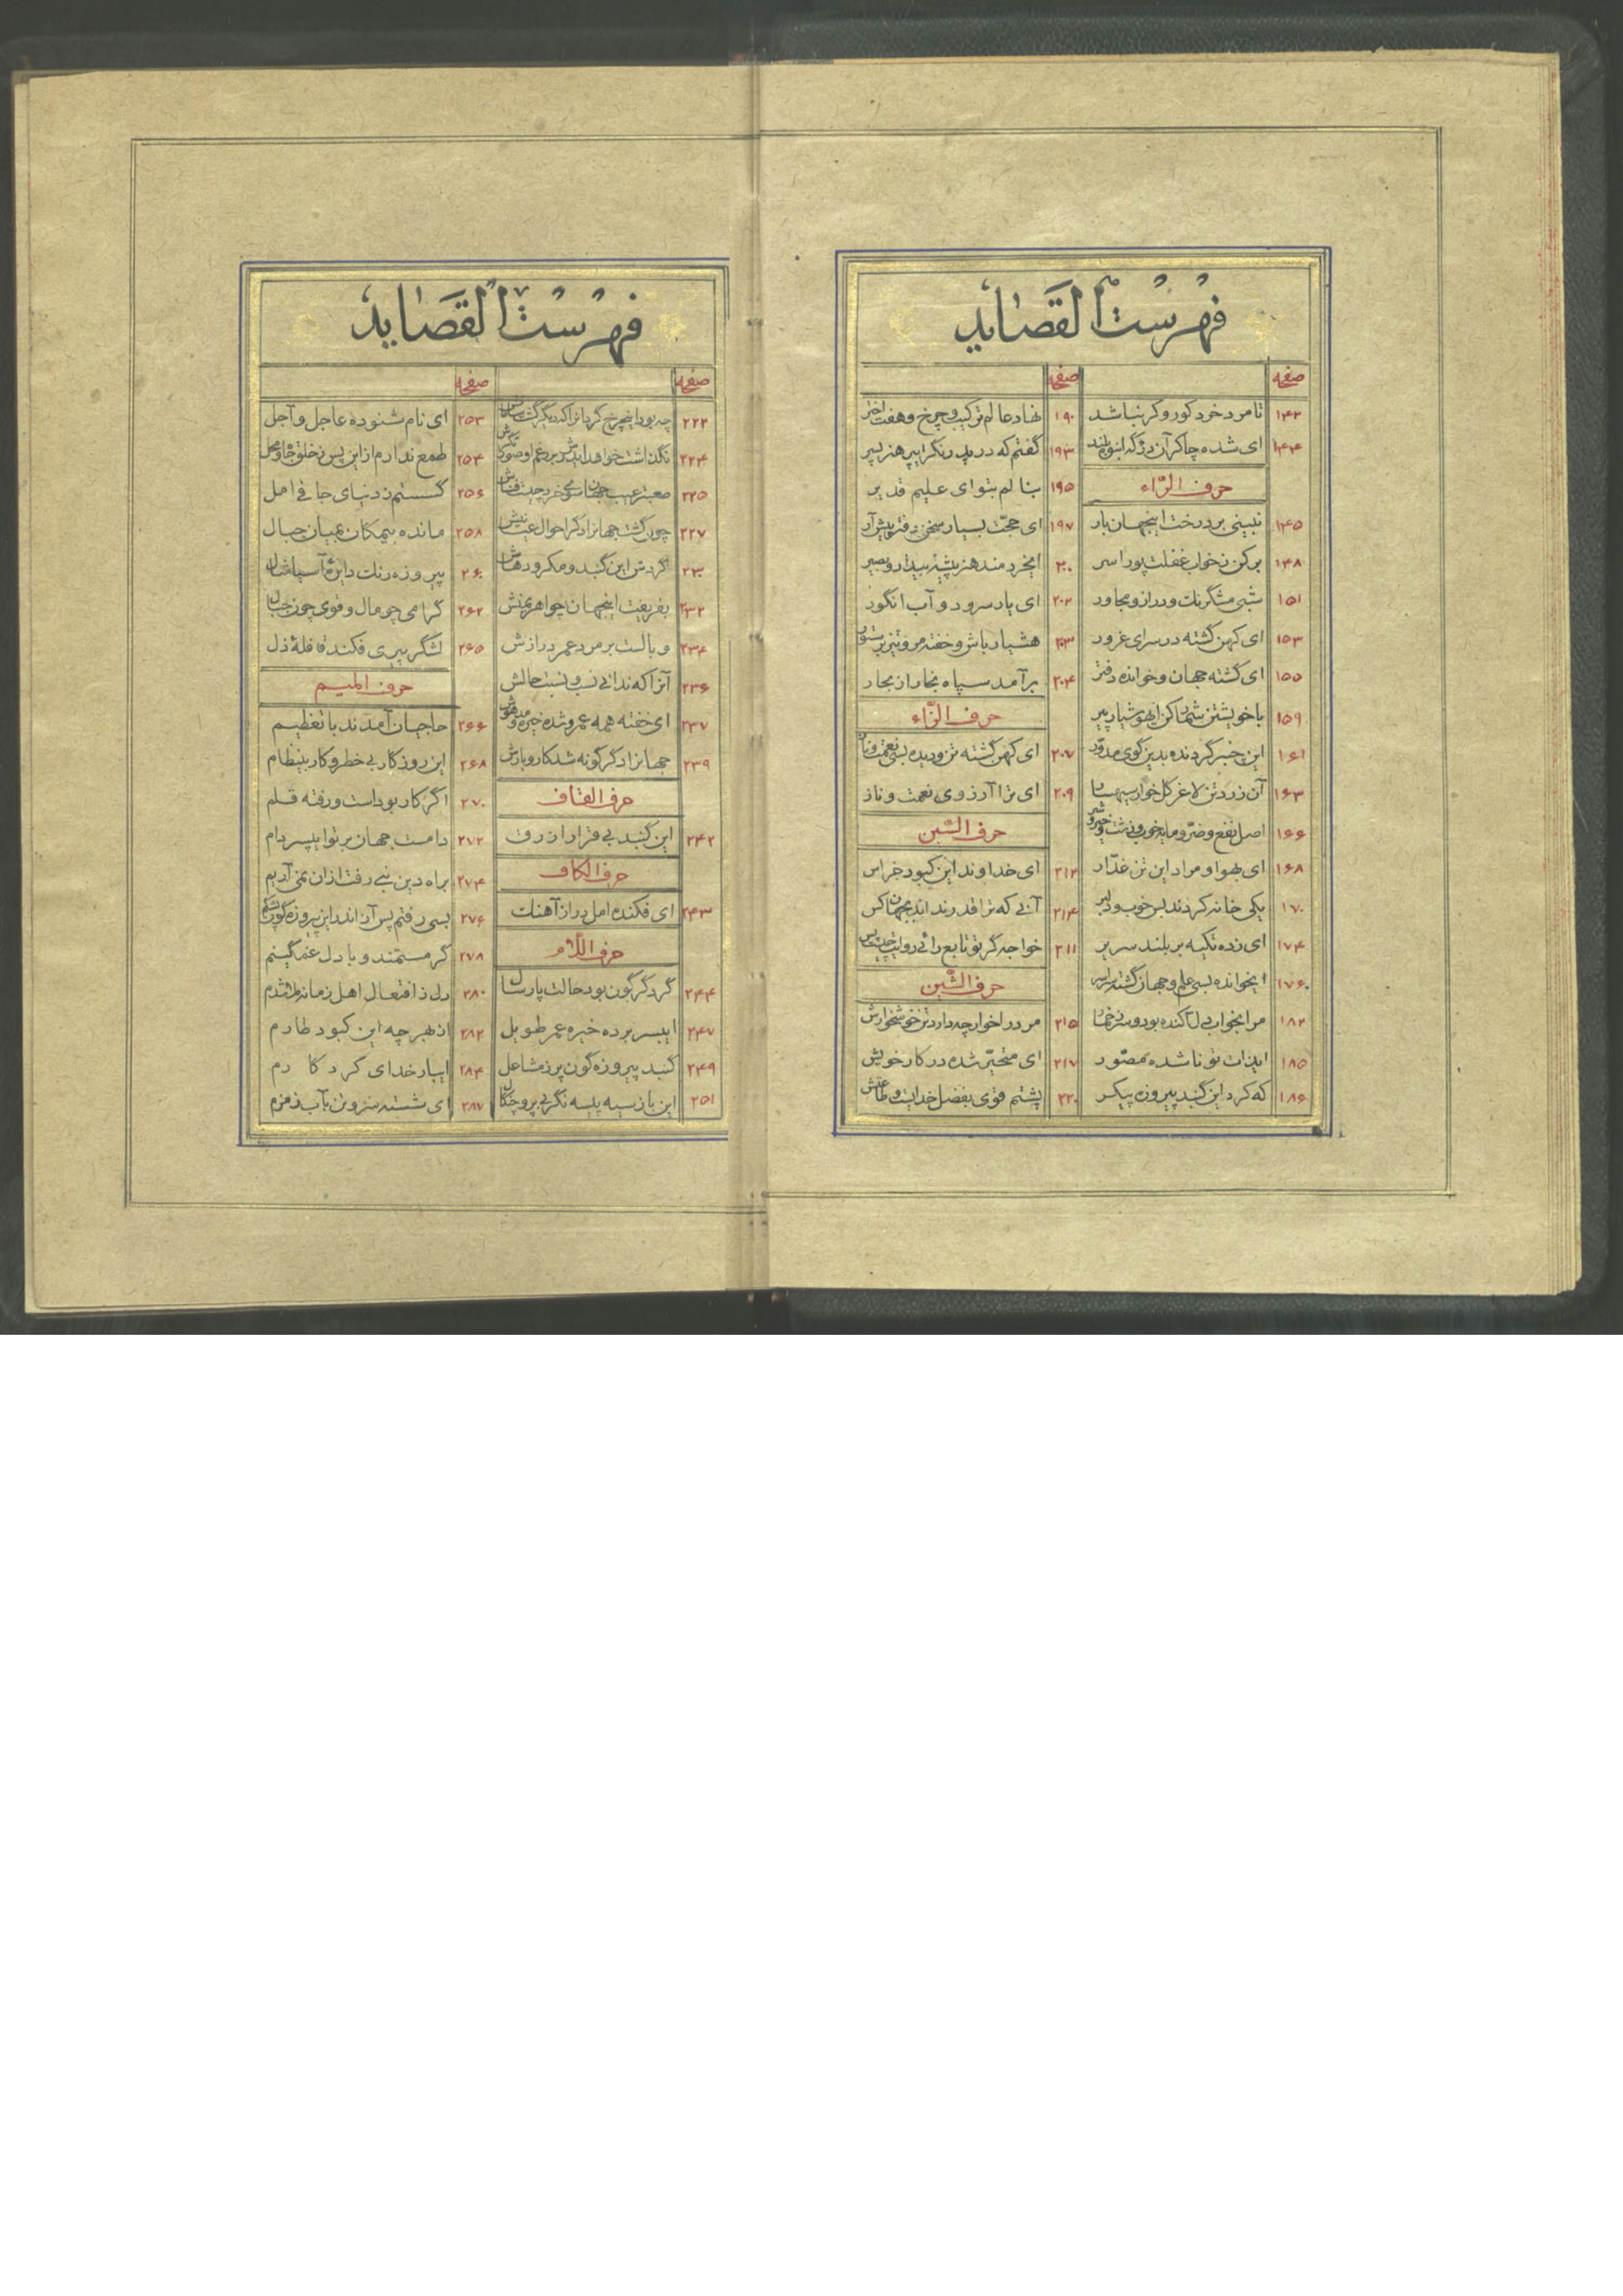 فهرست القصاید
صفحه
۱۴۲ تا مرد خرد کور و کر نباشد
۱۴۴ ای شده چاکر آن درگه انبوه بلند
حرف الرّاء
۱۴۵ نبینی بر درخت اینجهان بار
۱۴۸ برکن ز خواب غفلت پورا سر
۱۵۱ شبی
۱۵۳ ای کهن گشته در سرای غرور
۱۵۵ ای گشته جهان و خوانده دفتر
۱۵۹ با خویشتن شمار کن ای هوشیار پیر
۱۶۱ این چنبر گردنده بدین گوی مدوّر
۱۶۳ آن زرد تن لاغر گل خوار سیه سار
۱۶۶ اصل نفع و ضرّ و مایه خوب و زشت و خیر و شر
۱۶۸ ای بهوا و مراد این تن غدّار
۱۷۰ یکی خانه کردند بس خوب و دلبر
۱۷۴ ای زده تکیه بر بلند سریر
۱۷۶ ایخوانده بسی علم و جهان گشته سراسر
۱۸۲
۱۸۵ ایذات تو ناشده مصّور
۱۸۶ که کرد این گنبد پیروزه پیکر
صفحه
۱۹۰ نهاد عالم ترکیب و چرخ و هفت اختر
۱۹۳ گفتم که
۱۹۵ بنالم بتو ای علیم قدیر
۱۹۷ ای حجّت بسیار سخن دفتر پیش آر
۲۰۰ ایخردمند هنر پیشهٔ بیدار و بصیر
۲۰۲ ای یار سرود و آب انگور
۲۰۳ هشیار باش و خفته مرو تیز بر ستور
۲۰۴ برآمد سپاه بخار از بحار
حرف الزّاء
۲۰۷ ای کهن گشته تن و دیده بسی نعمت و ناز
۲۰۹ ای ترا آرزوی نعمت و ناز
حرف السّین
۲۱۲ ای خداوند این کبود خراس
۲۱۴ آنی که ترا قدر نداند بجهان کس
۲۱۱ خواجه گر تو تابع رائی
حرف الشّین
۲۱۵ مر درا خوار چه دارد تن خوش خوارش
۲۱۷ ای متحیّر شده در کار خویش
۲۲۰ پشتم قوی بفضل خدایست و طاعتش
فهرست القصاید
صفحه
۲۲۲ چه بود این چرخ گردانرا که دیگر گشت سامانش
۲۲۴
۲۲۵
۲۲۷ چون گشت جهانرا دگر احوال عیانیش
۲۳۰ گردش این گنبد و مکر و دهاش
۲۳۲ بفریفت اینجهان چو اهریمنش
۲۳۴ وبالست بر مرد عمر درازش
۲۳۶ آنرا که ندانی نسب و نسبت حالش
۲۳۷ ای خفته همه عمر و شده خیره و مدهوش
۲۳۹ جهانرا دگرگونه شد کار و بارش
حرف القاف
۲۴۲ این گنبد بی قرار ازرق
حرف الکاف
۲۴۳ ای فکنده امل دراز آهنگ
حرف اللّام
۲۴۴ گر دگرگون بود حالت پارسال
۲۴۷ ایپسر برده خیره عمر طویل
۲۴۹ گنبد پیروزه گون پر ز مشاعل
۲۵۱ این باز سیه پیسه نگر بی پر و چنگال
صفحه
۲۵۳ ای نام شنوده عاجل و آجل
۲۵۴ طمع ندارم از این پس ز خلق جاه و محل
۲۵۶ گسستم ز دنیای جافی امل
۲۵۸ مانده بیمکان بمیان جبال
۲۶۰ پیروزه رنگ دایرهٔ آسیا مثال
۲۶۲ گرامی چو مال و قوی چون جبال
۲۶۵ لشگر پیری فکند قافلهٔ ذل
حرف المیم
۲۶۶ حاجیان آمدند با تعظیم
۲۶۸ این روزگار بی خطر و کار بینظام
۲۷۰ اگر کار بوداست و رفته قلم
۲۷۲ دامست جهان بر تو ایپسر دام
۲۷۴ براه دین نبی رفت ازان نمی آریم
۲۷۶ بسی رفتم پس آز اندر این پیروزه گون
۲۷۸ گر مستمند و با دل غمگینم
۲۸۰ دل ز افتعال اهل زمانه ملا شدم
۲۸۲ از بهر چه این کبود طارم
۲۸۴ ایبار خدای کردگارم
۲۸۷ ای شسته سر و تن بآب زمزم